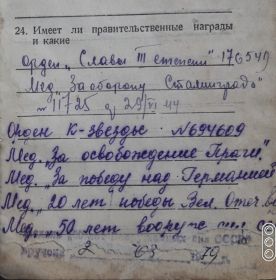 24. Имеет ли правительственные награды
и какие
Орден „Славы III степени" 176549
Мед. „За оборону Сталинграда"
Орден К-звезды · N694609
Мед. „За освобождение Праги"
Мед. „За победу над Германией
Мед. „20 лет победы Вел. Отеч. в
Мед. „50 лет вооруж сил с
2 79